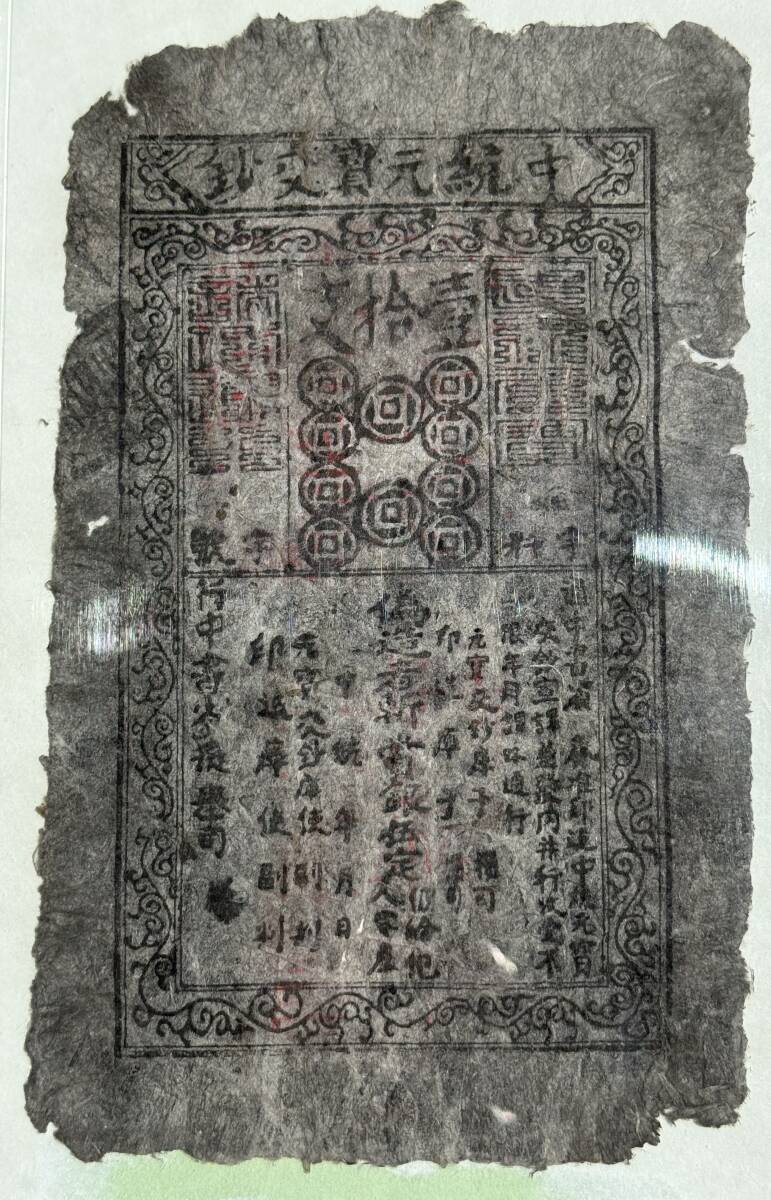 中統元寶交鈔
壹拾文
字料
字號
行中書省 奏准印造中統元寶
交鈔宣課差發內并行收受不
限年月諸路通行
元寶交鈔庫子 攢司
印造庫子 攢司
偽造者斬賞銀伍定仍給犯
人家產
中統 年 月 日
元寶交鈔庫使副判
印造庫使副判
行中書省提舉司